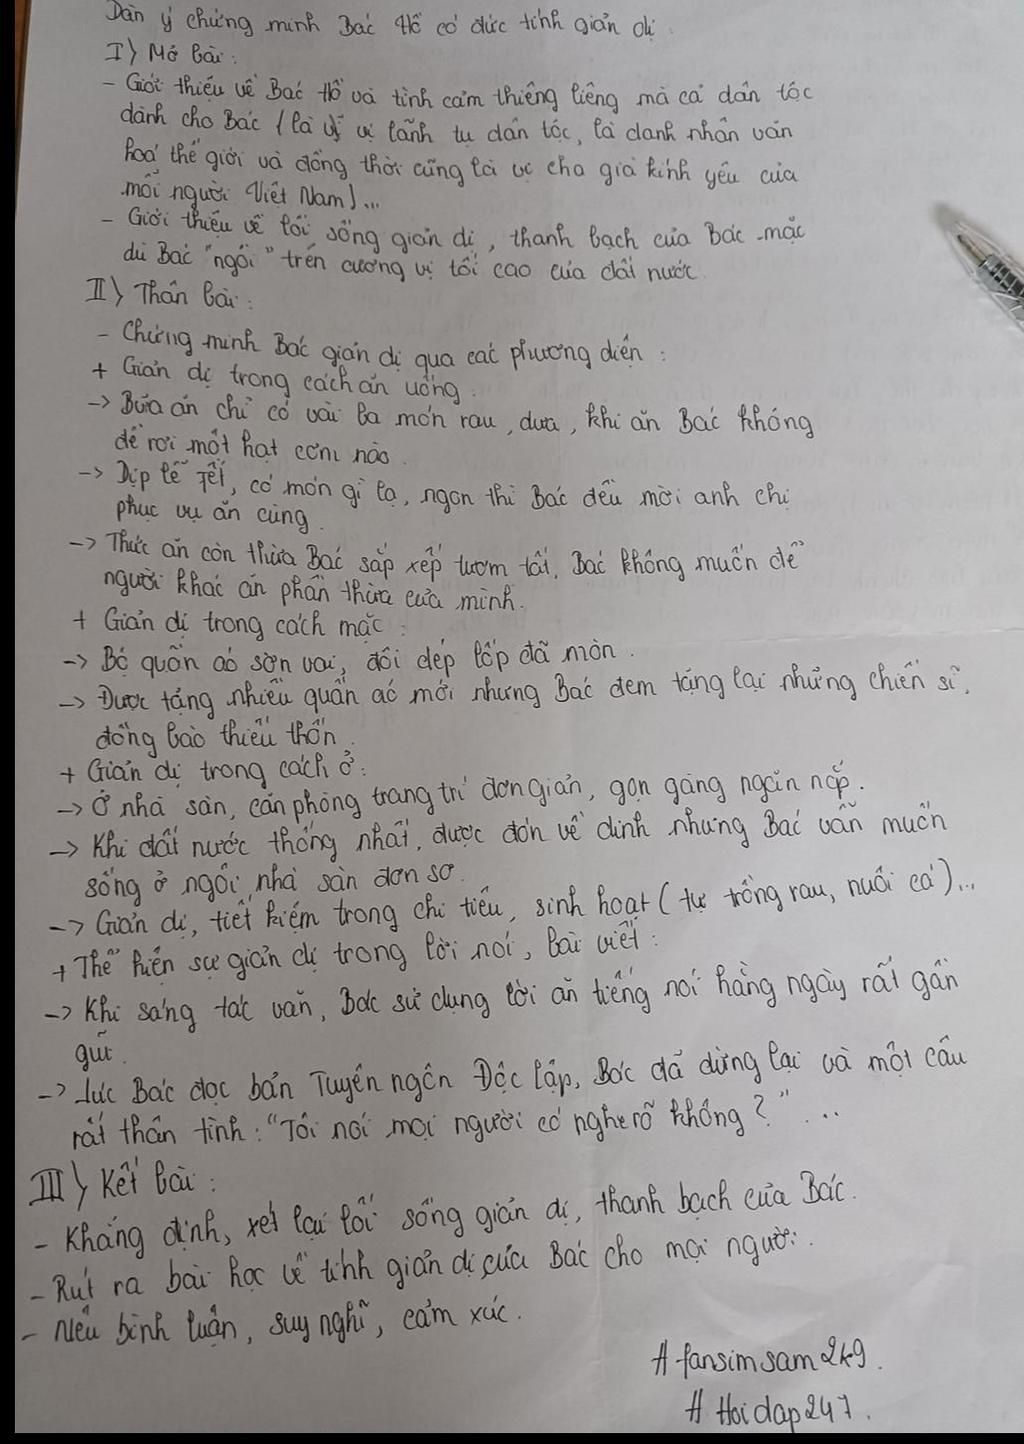 Dàn ý chứng minh Bác Hồ có đức tính giản dị.
I) Mở bài:
- Giới thiệu về Bác Hồ và tình cảm thiêng liêng mà cả dân tộc
dành cho Bác (là vị lãnh tụ dân tộc, là danh nhân văn
hoá thế giới và đồng thời cũng là vị cha già kính yêu của
mỗi người Việt Nam)...
- Giới thiệu về lối sống giản dị, thanh bạch của Bác mặc
dù Bác "ngồi" trên cương vị tối cao của đất nước.
II) Thân bài:
- Chứng minh Bác giản dị qua các phương diện:
+ Giản dị trong cách ăn uống.
-> Bữa ăn chỉ có vài ba món rau, dưa, khi ăn Bác không
để rơi một hạt cơm nào.
-> Dịp lễ Tết, có món gì lạ, ngon thì Bác đều mời anh chị
phục vụ ăn cùng.
-> Thức ăn còn thừa Bác sắp xếp tươm tất, Bác không muốn để
người khác ăn phần thừa của mình.
+ Giản dị trong cách mặc:
-> Bộ quần áo sờn vai, đôi dép lốp đã mòn.
-> Được tặng nhiều quần áo mới nhưng Bác đem tặng lại những chiến sĩ,
đồng bào thiếu thốn.
+ Giản dị trong cách ở:
-> Ở nhà sàn, căn phòng trang trí đơn giản, gọn gàng ngăn nắp.
-> Khi đất nước thống nhất, được đón về dinh nhưng Bác vẫn muốn
sống ở ngôi nhà sàn đơn sơ.
-> Giản dị, tiết kiệm trong chi tiêu, sinh hoạt (tự trồng rau, nuôi cá)...
+ Thể hiện sự giản dị trong lời nói, bài viết:
-> Khi sáng tác văn, Bác sử dụng lời ăn tiếng nói hằng ngày rất gần
gũi.
-> Lúc Bác đọc bản Tuyên ngôn Độc lập, Bác đã dừng lại và một câu
rất thân tình: "Tôi nói mọi người có nghe rõ không?"...
III) Kết bài:
- Khẳng định, xét lại lối sống giản dị, thanh bạch của Bác.
- Rút ra bài học về tính giản dị của Bác cho mọi người.
- Nêu bình luận, suy nghĩ, cảm xúc.
# fansimsam2k9.
# Hoidap247.